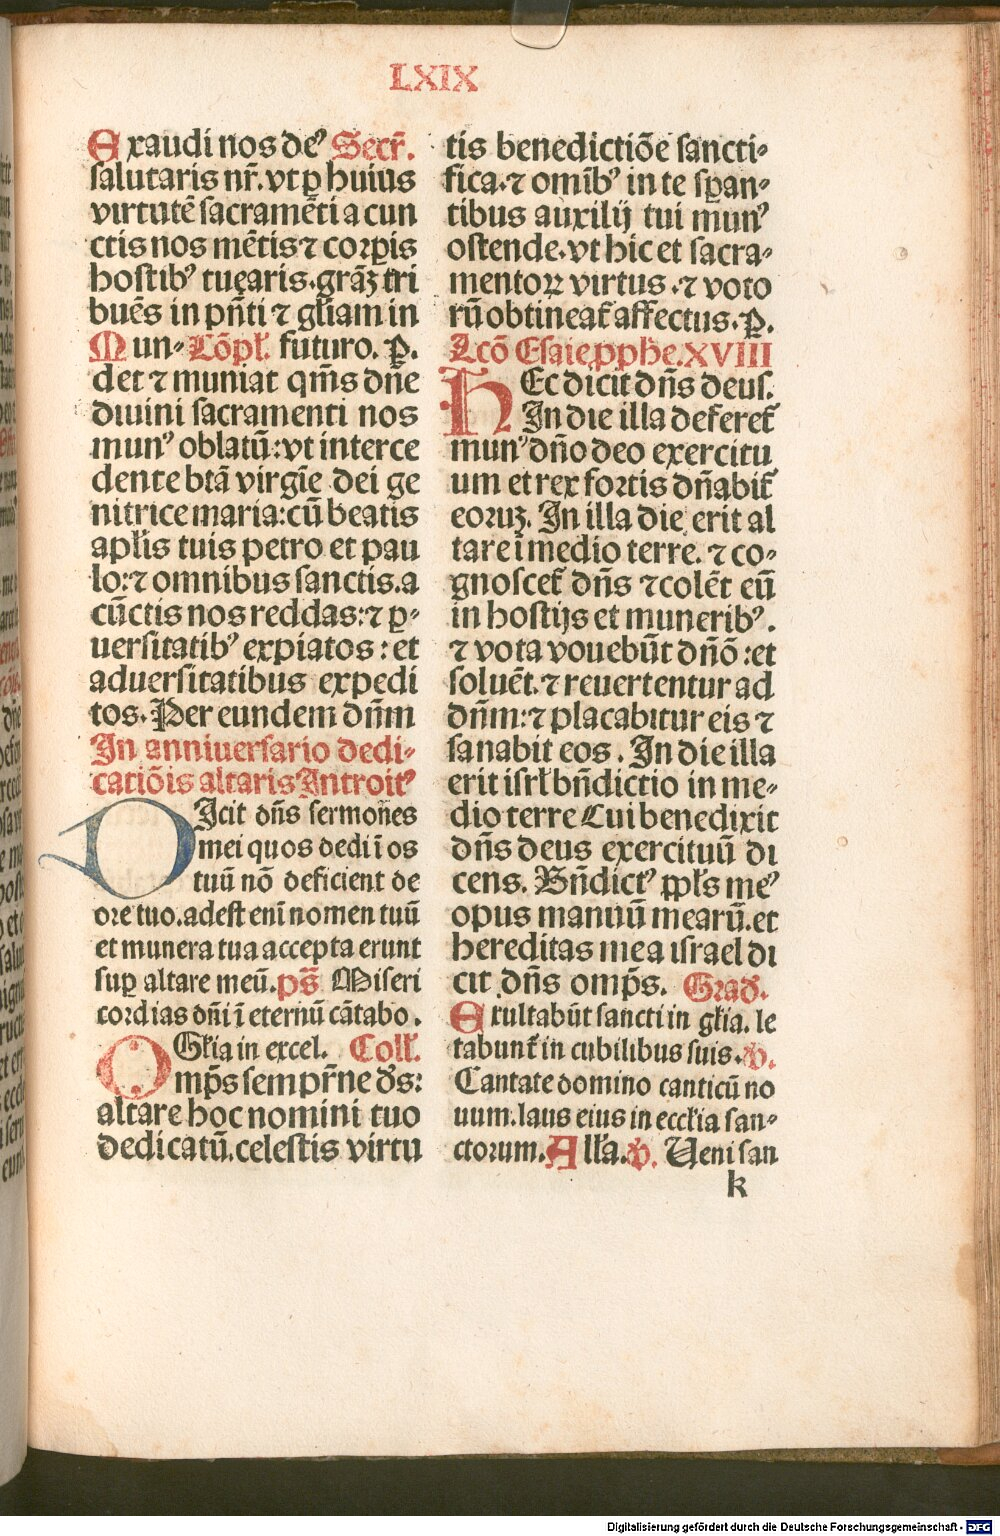 LXIX
Exaudi nos deꝰ Secr̄.
salutaris nr̄. vt ꝑ huius
virtutē sacramēti a cun
ctis nos mētis ⁊ corꝑis
hostibꝰ tuearis. grāꝫ tri
buēs in pn̄ti ⁊ gl̄iam in
Mun⸗ Cōpl̄. futuro. P̄.
det ⁊ muniat qm̄s dn̄e
diuini sacramenti nos
munꝰ oblatū: vt interce
dente btā virgīe dei ge
nitrice maria: cū beatis
apl̄is tuis petro et pau
lo: ⁊ omnibus sanctis. a
cūctis nos reddas: ⁊ ꝑ⸗
uersitatibꝰ expiatos: et
aduersitatibus expedi
tos. Per eundem dn̄m
In anniuersario dedi⸗
catiōis altaris Introitꝰ
DIcit dn̄s sermones
mei quos dedi ī os
tuū nō deficient de
ore tuo. adest enī nomen tuū
et munera tua accepta erunt
suꝑ altare meū. ps̄ Miseri
cordias dn̄i ī eternū cātabo.
Gl̄ia in excel. Coll̄.
Omp̄s sempr̄ne ds̄:
altare hoc nomini tuo
dedicatū. celestis virtu
tis benedictiōe sancti⸗
fica. ⁊ omībꝰ in te sꝑan⸗
tibus auxilij tui munꝰ
ostende. vt hic et sacra⸗
mentoꝝ virtus. ⁊ voto
rū obtineat̄ affectus. P̄.
Lcō Esaie ꝓphe. XVIII
HEc dicit dn̄s deus.
In die illa deferet̄
munꝰ dn̄o deo exercitu
um et rex fortis dn̄abit̄
eoruꝫ. In illa die erit al
tare ī medio terre. ⁊ co⸗
gnoscet̄ dn̄s ⁊ colēt eū
in hostijs et muneribꝰ.
⁊ vota vouebūt dn̄o: et
soluēt. ⁊ reuertentur ad
dn̄m: ⁊ placabitur eis ⁊
sanabit eos. In die illa
erit isrl̄ bn̄dictio in me⸗
dio terre Cui benedixit
dn̄s deus exercituū di
cens. Bn̄dictꝰ ppl̄s meꝰ
opus manuū mearū. et
hereditas mea israel di
cit dn̄s omp̄s. Grad̄.
Exultabūt sancti in gl̄ia. le
tabunt̄ in cubilibus suis. v̄.
Cantate domino canticū no
uum. laus eius in eccl̄ia san⸗
ctorum. All̄a. v̄. Veni san
k
Digitalisierung gefördert durch die Deutsche Forschungsgemeinschaft - DFG